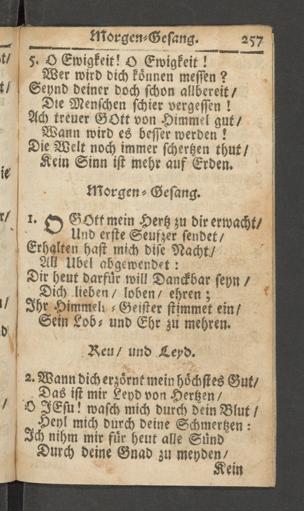 Morgen-Gesang. 257
5. O Ewigkeit! O Ewigkeit!
Wer wird dich können messen?
Seynd deiner doch schon allbereit/
Die Menschen schier vergessen!
Ach treuer GOtt von Himmel gut/
Wann wird es besser werden!
Die Welt noch immer schertzen thut/
Kein Sinn ist mehr auf Erden.
Morgen-Gesang.
1. O GOtt mein Hertz zu dir erwacht/
Und erste Seufzer sendet/
Erhalten hast mich dise Nacht/
All Ubel abgewendet:
Dir heut darfür will Danckbar seyn/
Dich lieben/ loben/ ehren;
Ihr Himmels-Geister stimmet ein/
Sein Lob- und Ehr zu mehren.
Reu/ und Leyd.
2. Wann dich erzörnt mein höchstes Gut/
Das ist mir Leyd von Hertzen/
O JEsu! wasch mich durch dein Blut/
Heyl mich durch deine Schmertzen:
Ich nihm mir für heut alle Sünd
Durch deine Gnad zu meyden/
Kein